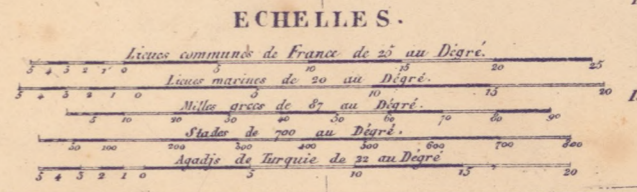 ECHELLES.
Lieues communes de France de 25 au Dégré.
5 4 3 2 1 0 5 10 15 20 25
Lieues marines de 20 au Dégré.
5 4 3 2 1 0 5 10 15 20
Milles grecs de 87 au Dégré.
5 10 20 30 40 50 60 70 80 90
Stades de 700 au Dégré.
50 100 200 300 400 500 600 700 800
Agadjs de Turquie de 22 au Dégré
5 4 3 2 1 0 5 10 15 20